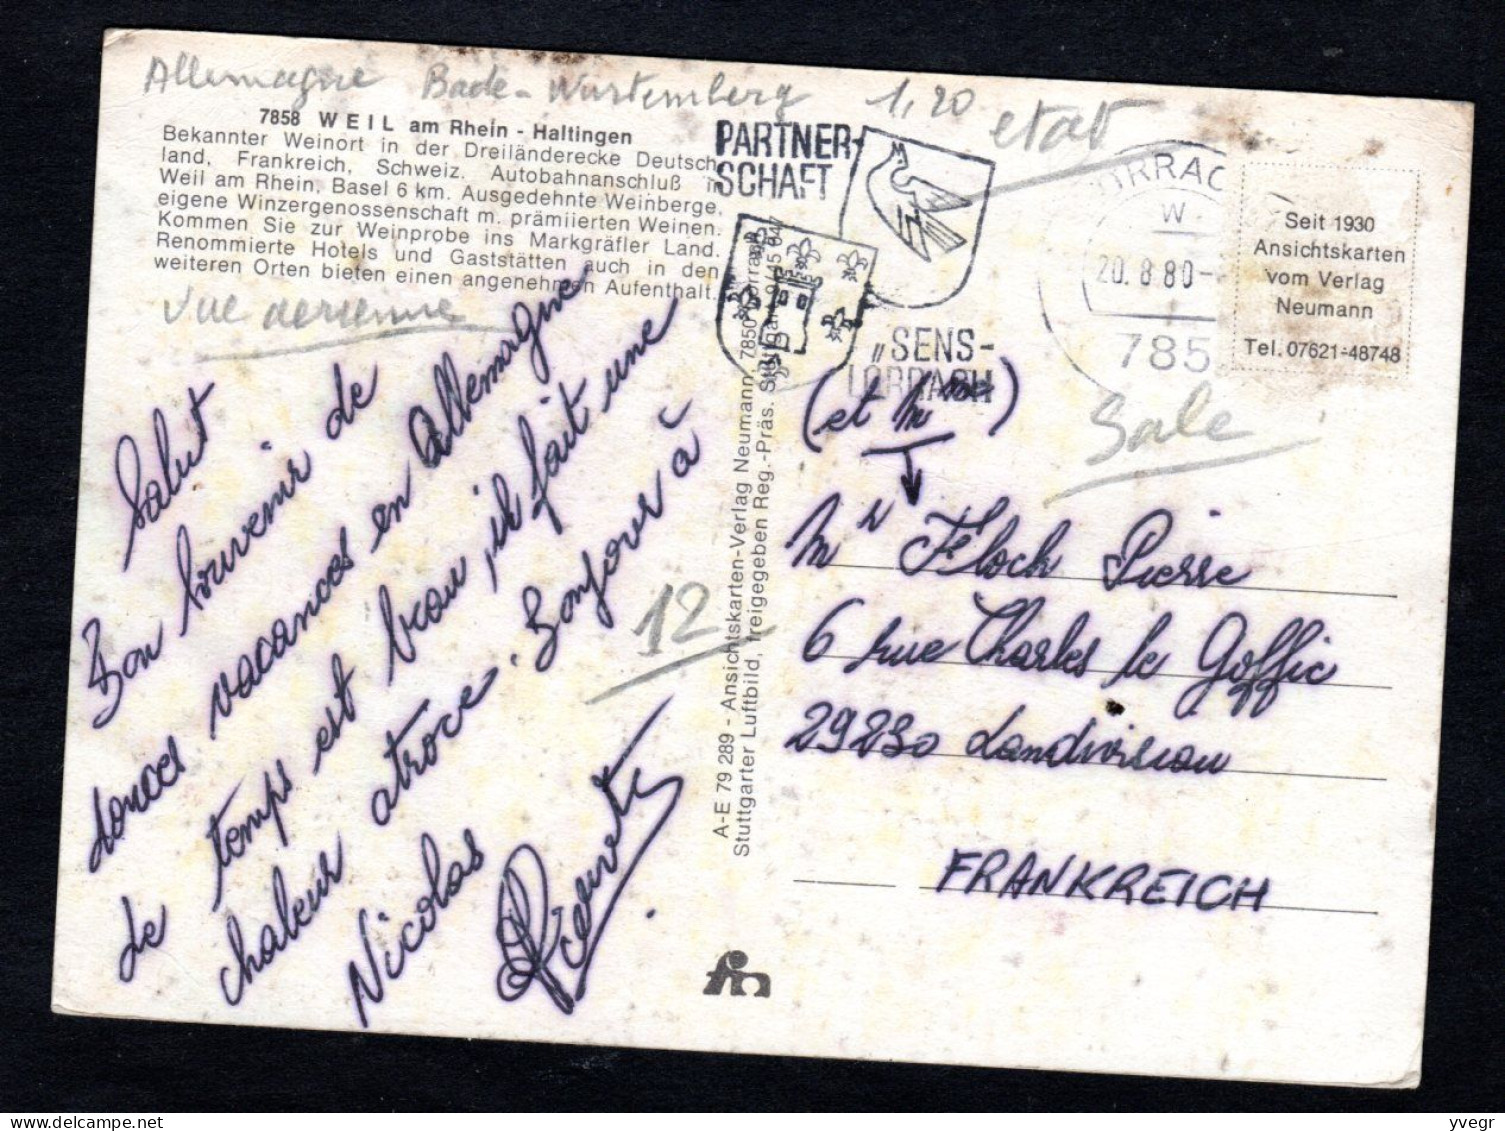 Allemagne Bade-Wurtemberg 1,20
etat
7858 WEIL am Rhein - Haltingen
Bekannter Weinort in der Dreiländerecke Deutsch-
land, Frankreich, Schweiz. Autobahnanschluß in
Weil am Rhein. Basel 6 km. Ausgedehnte Weinberge,
eigene Winzergenossenschaft m. prämiierten Weinen.
Kommen Sie zur Weinprobe ins Markgräfler Land.
Renommierte Hotels und Gaststätten auch in den
weiteren Orten bieten einen angenehmen Aufenthalt.
vue aerienne
Salut
Bon souvenir de
bonnes vacances en Allemagne
Le temps est beau, il fait une
chaleur atroce. Bonjour à
Nicolas
12
A-E 79 289 - Ansichtskarten-Verlag Neumann, 7850 Lörrach
Stuttgarter Luftbild, freigegeben Reg.-Präs. Stuttgart
PARTNER-
SCHAFT
„SENS-
LÖRRACH
ÖRRAC
w
20.8.80-
785
Seit 1930
Ansichtskarten
vom Verlag
Neumann
Tel. 07621-48748
Sale
(et Mme)
Mr Floch Pierre
6 rue Charles le Goffic
29230 Landivisiau
FRANKREICH
yvegr